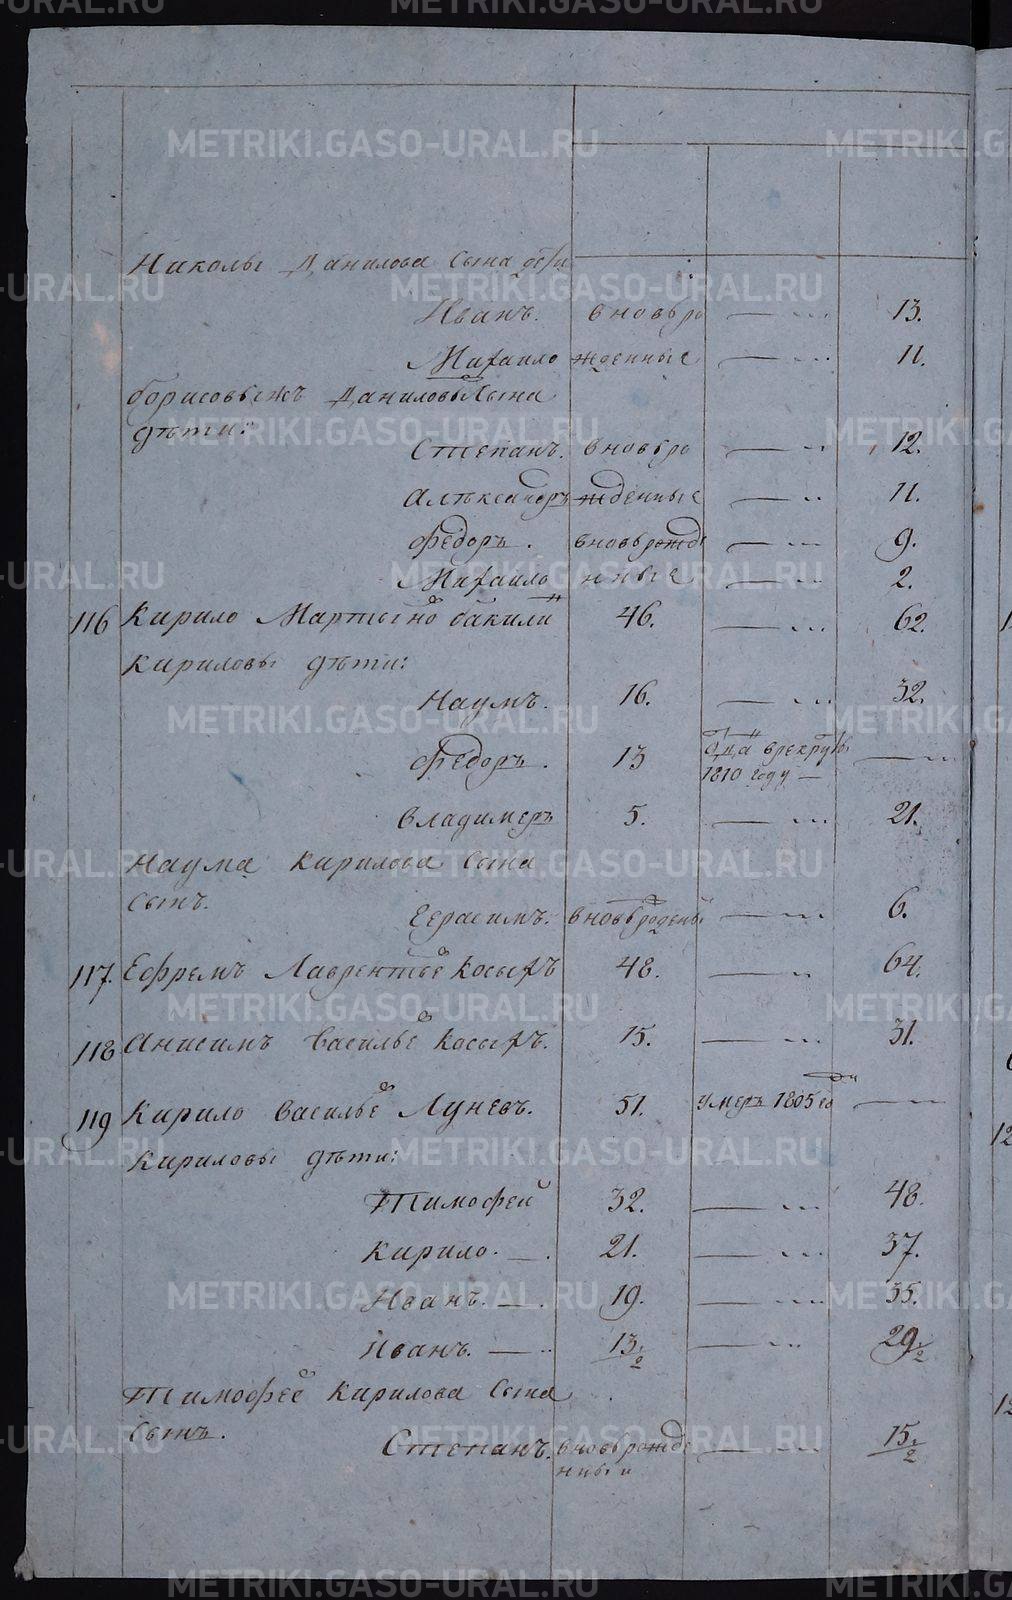 Николы Данилова сына дѣти
Иванъ. вновьро — ... 13.
Михаило жденные — ... 11.
борисовыжъ Даниловы сына
дѣти:
Степанъ. вновьро — ... 12.
Александръ жденные — ... 11.
Федоръ. вновьрожде — ... 9.
Михаило нные — ... 2.
116 Кирило Мартыно бакили 46. — ... 62.
Кириловы дѣти:
Наумъ. 16. — ... 32.
Федоръ. 13 врекруты —
1810 году —
Владимеръ 5. — ... 21.
Наума Кирилова сына
сынъ.
Герасимъ. вновьроденый — ... 6.
117. Ефремъ Лаврентье Косыхъ 48. — ... 64.
118 Анисимъ Василье Косыхъ. 15. — ... 31.
119 Кирило Василье Луневъ. 51. умеръ 1805 го —
Кириловы дѣти:
Тимофей 32. — ... 48.
Кирило. — . 21. — ... 37.
Иванъ. — . 19. — ... 35.
Иванъ. — .. 13½ — ... 29½
Тимофее Кирилова сына
сынъ.
Степанъ. вновьрожде — ... 15½
нный
METRIKI.GASO-URAL.RU